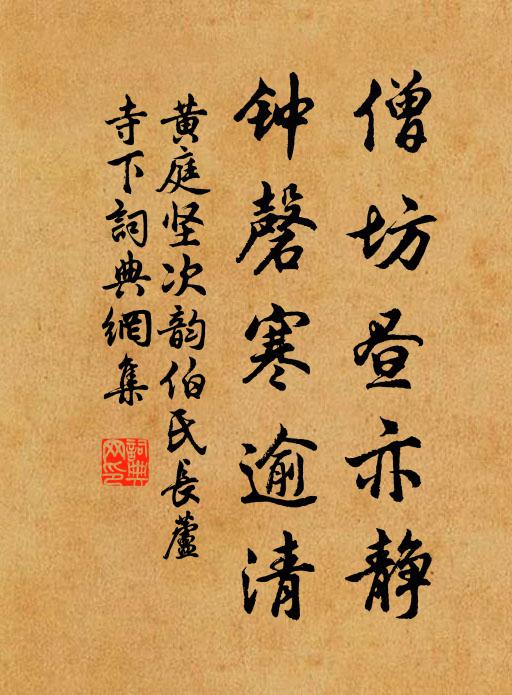 僧坊昼亦静
钟磬寒逾清
黄庭坚次韵伯氏長蘆
寺下詞典網集
詞典网印